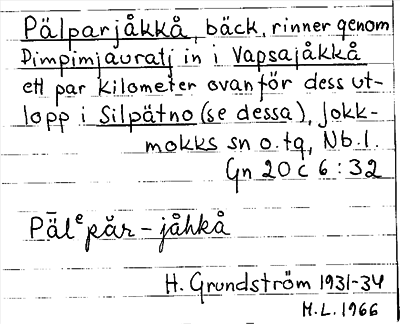 Pälparjåkkå, bäck, rinner genom
Pimpimjauratj in i Vapsajåkkå
ett par kilometer ovanför dess ut-
lopp i Silpätno (se dessa), Jokk-
mokks sn o. tg, Nb.l.
Gn 20 C 6 : 32
Pālᵉpår-jåhkå
H. Grundström 1931-34
M.L. 1966